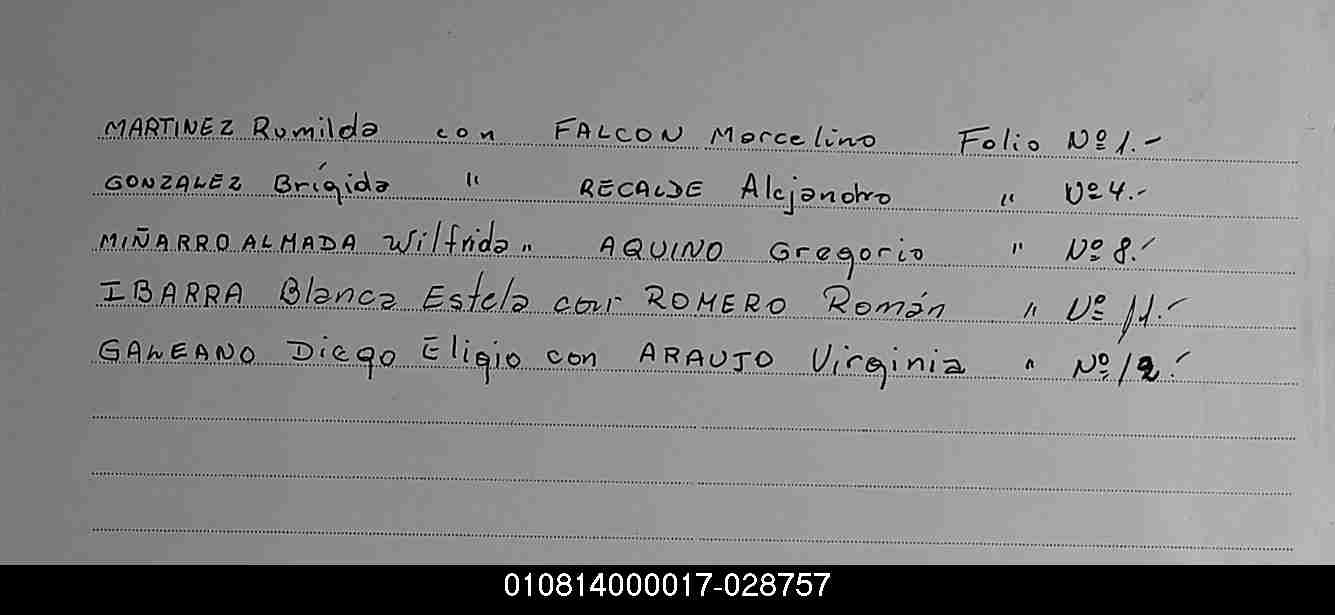 MARTINEZ Rumilda con FALCON Marcelino Folio Nº 1.-
GONZALEZ Brígida " RECALDE Alejandro " Nº 4.-
MIÑARRO ALMADA Wilfrida " AQUINO Gregorio " Nº 8.-
IBARRA Blanca Estela con ROMERO Román " Nº 11.-
GALEANO Diego Eligio con ARAUJO Virginia " Nº 12.-
010814000017-028757